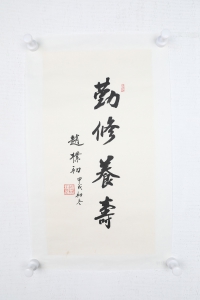 勤修養壽
趙樸初
甲戌初冬